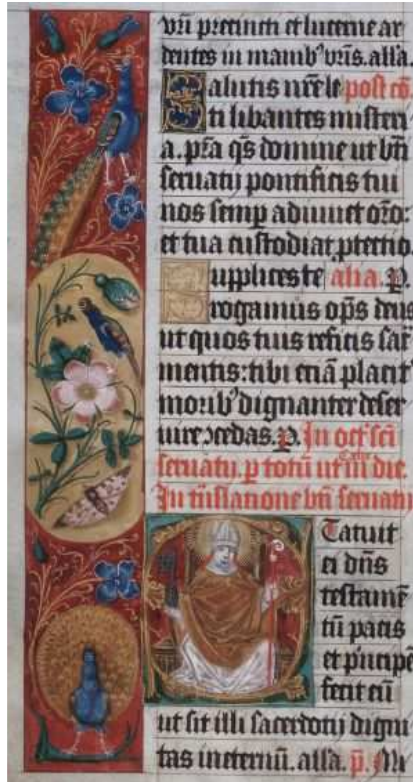 vri precincti et lucerne ar
dentes in manib' vris. alla.
Salutis nre le post co.
ti libantes misteri
a. pra qs domine ut bti
seruatij pontificis tui
nos semp adiuuet oro:
et tua custodiat ptectio.
Supplices te alia. p.
Rogamus ops deus
ut quos tuis reficis sacr
mentis: tibi etia placit
morib' dignanter deser
uire ꝯcedas. p. In oct sci
seruatij. p totu ut in die.
In tnslatione bti seruatij
Statuit
ei dns
testame
tu pacis
et pincipe
fecit eu
ut sit illi sacerdotij digni
tas in eternu. alla. p. Mi